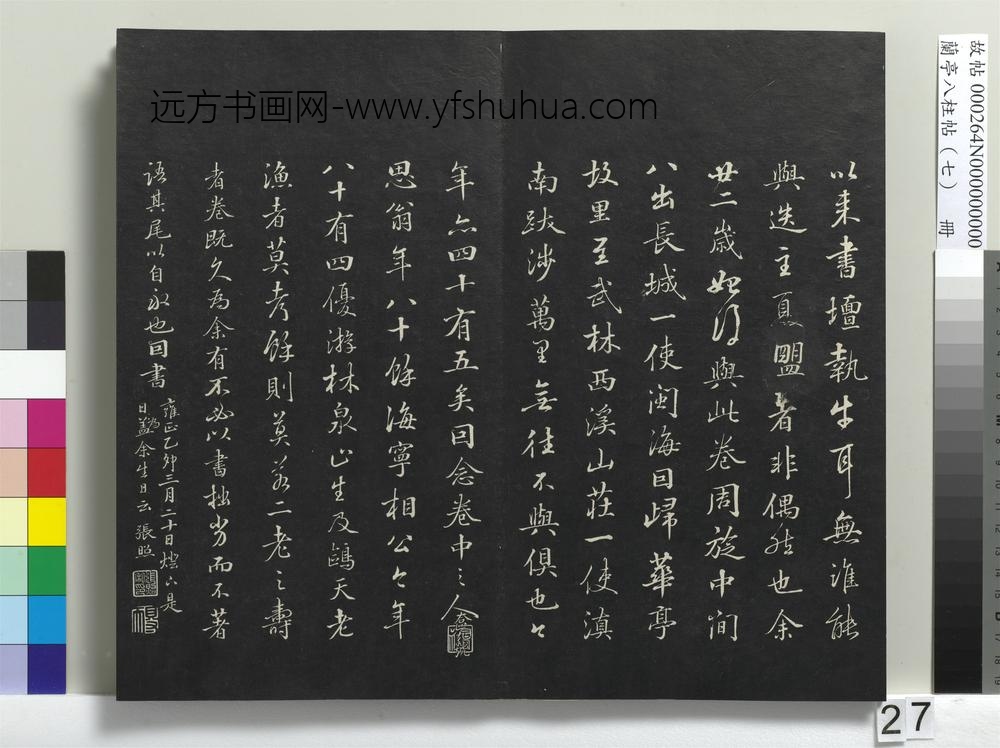 以来書壇執牛耳無誰能
與迭主夏盟者非偶然也余
廿二歲始得與此卷周旋中間
八出長城一使閩海回歸華亭
故里至武林西溪山莊一使滇
南跋涉萬里無往不與俱也今
年亦四十有五矣回念卷中之人
思翁年八十餘海寧相公今年
八十有四優游林泉山生及鷗天老
漁者莫考餘則莫若二老之壽
者卷既久為余有不必以書拙劣而不著
語其尾以自永也回書
雍正乙卯三月二十日燈六是
日為余生日云 張照
远方书画网-www.yfshuhua.com
故帖 000264N000000000
蘭亭八柱帖（七） 冊
27